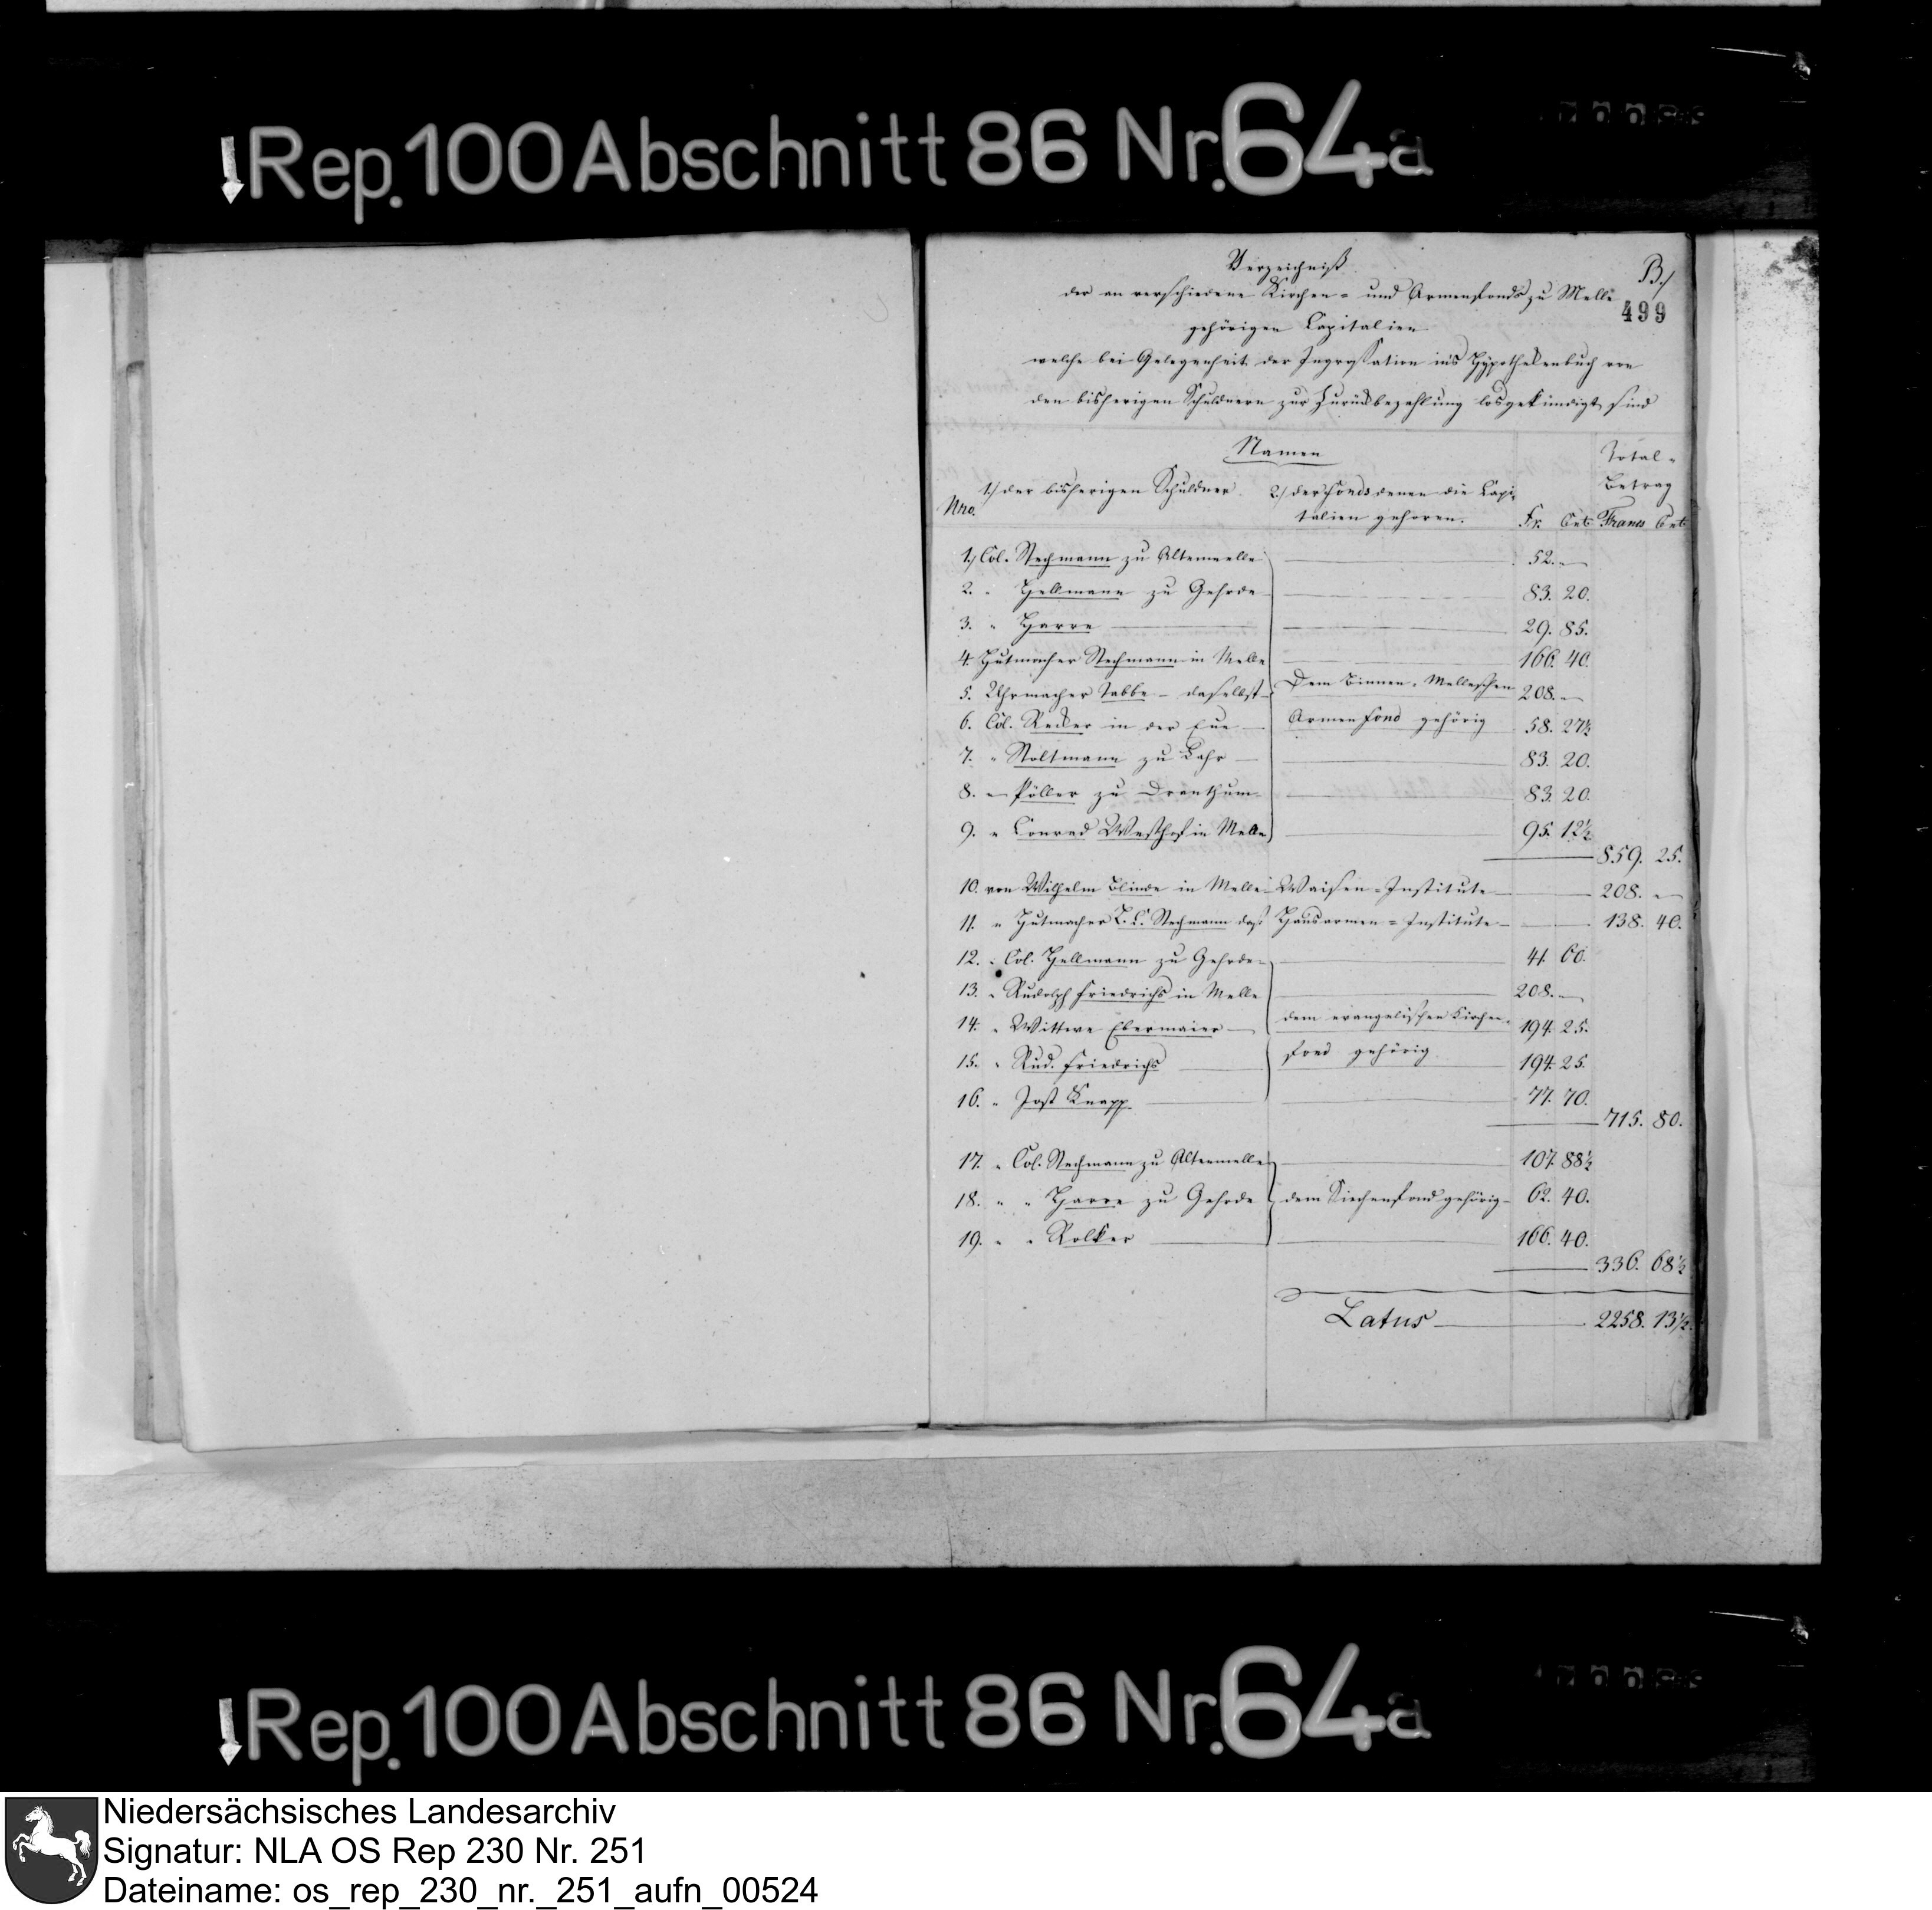 Rep. 100 Abschnitt 86 Nr. 64a
B./
499
Verzeichniß
der an verschiedene Kirchen= und Armenfonds zu Melle
gehörigen Capitalien
welche bei Gelegenheit der Ingrossation ins Hÿpothekenbuch von
den bisherigen Schuldnern zur Zurückbezahlung losgekündigt sind
Namen
Total-
Betrag
Nro. 1./ der bisherigen Schuldner. 2./ der Fonds denen die Capi-
talien gehören. Fr. Cnt. Francs Cnt.
1./ Col. Stechmann zu Altenmelle 52. "
2. " Hellmann zu Gehrde 83. 20.
3. " Harre 29. 85.
4. Hutmacher Stechmann in Melle 166. 40.
5. Uhrmacher Tabbe - daselbst - Dem Binnen-Melleschen 208. "
6. Col. Recker in der Eue Armenfond gehörig 58. 27½
7. " Stoltmann zu Bahr 83. 20.
8. " Höller zu Drantum 83. 20.
9. " Conrad Westhof in Melle 95. 12½
859. 25.
10. von Wilhelm Blinde in Melle Waisen=Institute 208. "
11. " Hutmacher Stechmann das. Hausarmen=Institute 138. 40.
12. " Col. Hellmann zu Gehrde 41. 60.
13. " Rudolph Friedrichs in Melle 208. "
14. " Wittwe Ebermaier dem evangelischen Kirchen- 194. 25.
15. " Rud. Friedrichs fond gehörig 194. 25.
16. " Jost Knapp 77. 70.
715. 80.
17. " Col. Stechmann zu Altenmelle 107. 88½
18. " " Harre zu Gehrde dem Siechenfond gehörig 62. 40.
19. " " Rolker 166. 40.
336. 68½
Latus 2258. 13½
Rep. 100 Abschnitt 86 Nr. 64a
Niedersächsisches Landesarchiv
Signatur: NLA OS Rep 230 Nr. 251
Dateiname: os_rep_230_nr._251_aufn_00524